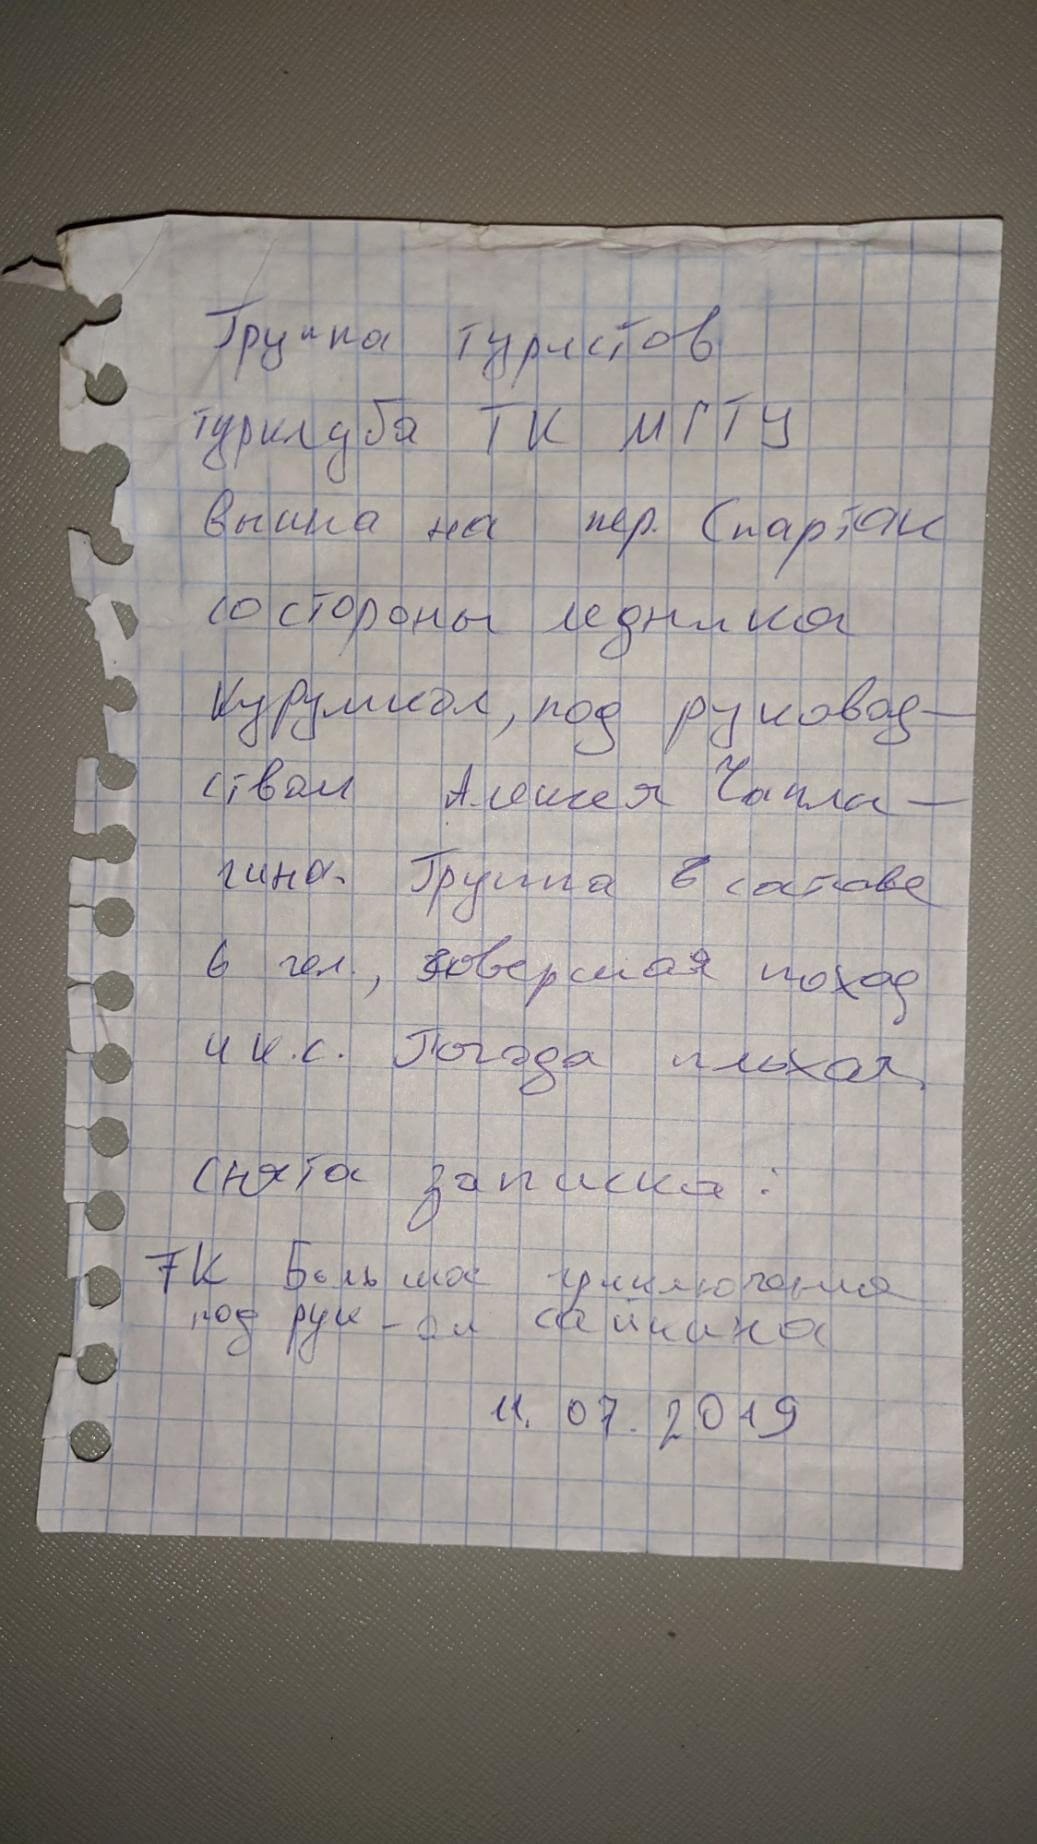 Группа туристов
турклуба ТК МГТУ
вышла на пер. Спартак
со стороны ледника
Курумкол, под руковод-
ством Алексея Чапла-
гина. Группа в составе
6 чел., совершая поход
4 к.с. Погода плохая.
Снята записка:
ТК Большое приключения
под рук-ом Сайкина
11.07.2019